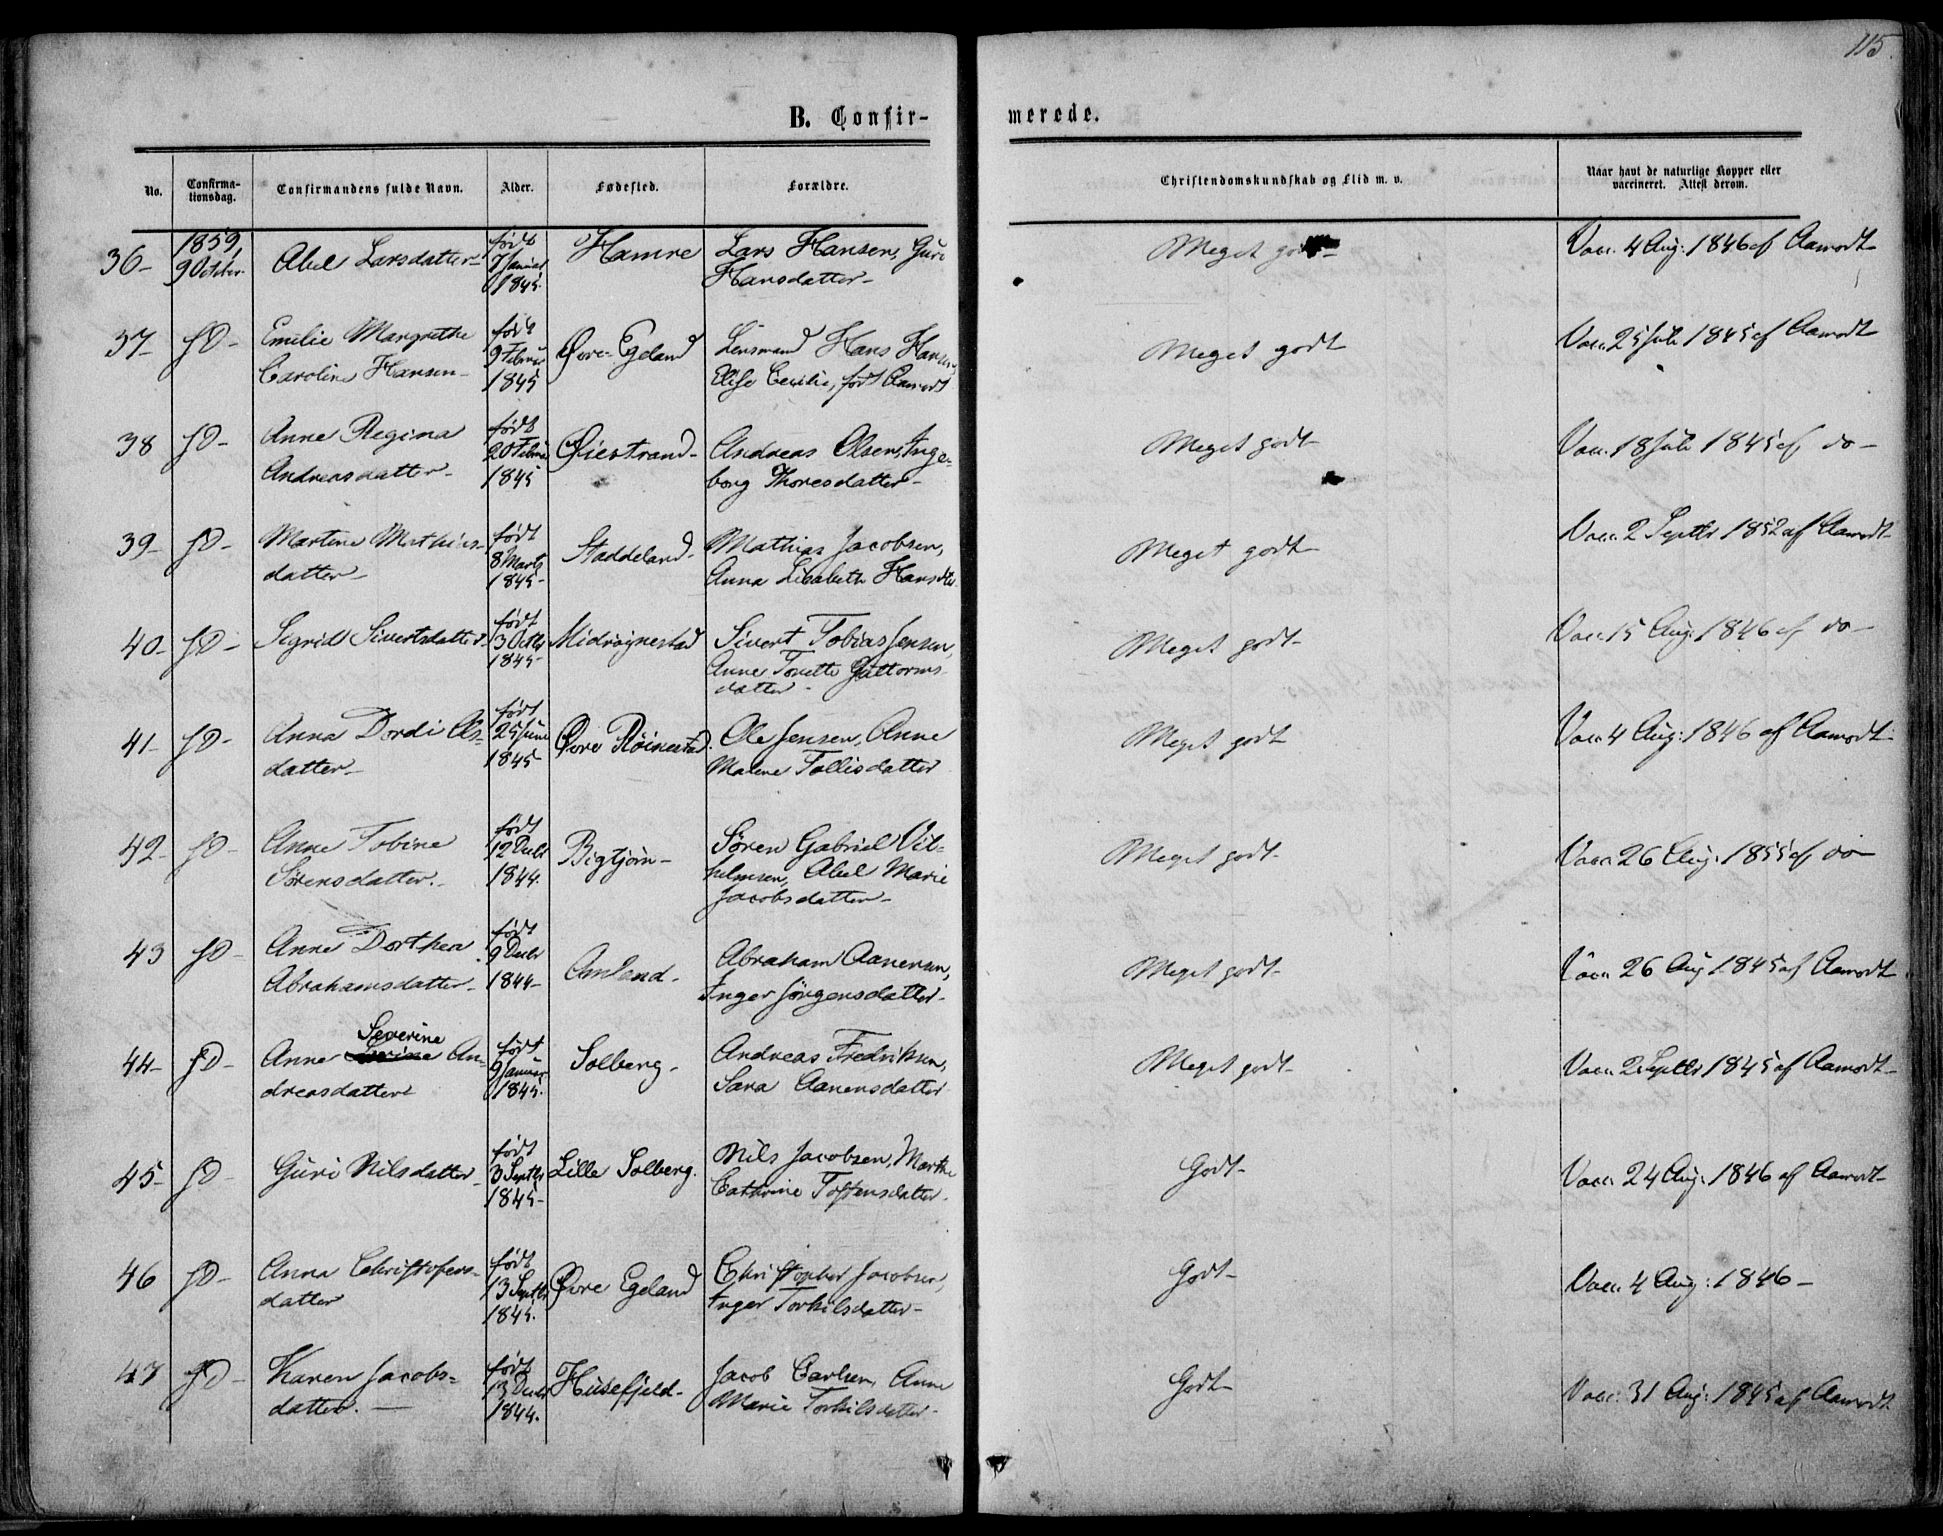 115.
B. Confir-
merede.
No.
Confirma-
tionsdag.
Confirmandens fulde Navn.
Alder.
Fødested.
Forældre.
Christendomskundskab og Flid m. v.
Naar havt de naturlige Kopper eller
vaccineret. Attest derom.
36-
1859,
9 October
Abel Larsdatter-
født
7 Januar
1845.
Hamre
Lars Hansen, Guri
Hansdatter-
Meget godt-
Vacc. 4 Aug: 1846 af Aamodt-
37-
Emilie Margrethe
Caroline Hansen-
født
9 Februar
1845
Øvre-Egeland
Lensmand Hans Hansen,
Elise Cecilie, født Aamodt
Meget godt
Vacc. 25 Juli 1845 af Aamodt
38
Anne Regina
Andreasdatter-
født
20 Februar
1845
Øiestrand-
Andreas Olsen, Inge-
borg Thoresdatter-
Meget godt-
Vacc. 18 Juli 1845 af do-
39-
Martine Mathias-
datter-
født
8 Marts
1845-
Staddeland-
Mathias Jacobsen,
Anna Lisabeth Hansdtr.
Meget godt-
Vacc. 2 Septbr 1852 af Aamodt-
40-
Sigrid Sivertsdatter-
født
3 Octbr
1845-
Midrøgnestad
Sivert Tobias Jensen,
Anne Tonette Guttorms-
datter-
Meget godt-
Vacc. 15 Aug: 1846 af do-
41-
Anna Dordi Ols-
datter-
født
25 Juni
1845-
Øvre Røinestad.
Ole Jensen, Anne
Malene Tollisdatter
Meget godt
Vacc. 4 Aug: 1846 af Aamodt-
42-
Anne Tobine
Sørensdatter.
født
12 Decbr
1844.
Bigtjørn-
Søren Gabriel Vil-
helmsen, Abel Marie
Jacobsdatter-
Meget godt-
Vacc. 26 Aug. 1855 af do-
43
Anne Dorthea
Abrahamsdatter-
født
9 Decbr
1844-
Amland-
Abraham Aanensen,
Inger Jörgensdatter-
Meget godt-
Vacc. 26 Aug 1845 af Aamodt-
44-
Severine
Anne An-
dreasdatter
født
9 Januar
1845.
Solberg-
Andreas Fredriksen,
Sara Aanensdatter
Meget godt-
Vacc. 2 Septbr 1845 af Aamodt-
45-
Guri Nilsdatter-
født
3 Septbr
1845-
Lille Solberg.
Nils Jacobsen, Marthe
Cathrine Tostensdatter-
Godt-
Vacc. 24 Aug. 1846 af Aamodt-
46
Anna Christofers-
datter
født
13 Septbr
1845.
Øvre Egeland
Christopher Jacobsen,
Inger Torkilsdatter-
Godt-
Vacc. 4 Aug: 1846-
47
Karen Jacobs-
datter.-
født
13 Decbr
1844.
Husefjeld-
Jacob Carlsen, Anne
Marie Torkilsdatter-
Godt-
Vacc. 31 Aug: 1845 af Aamodt